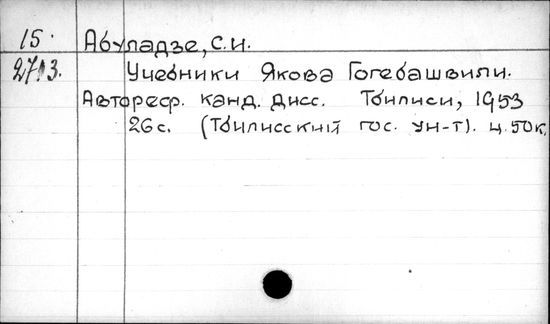 15. Абуладзе, С.И.
2713. Учебники Якова Гогебашвили.
Автореф. канд. дисс. Тбилиси, 1953
26с. (Тбилисский гос. ун-т). ц. 50к.